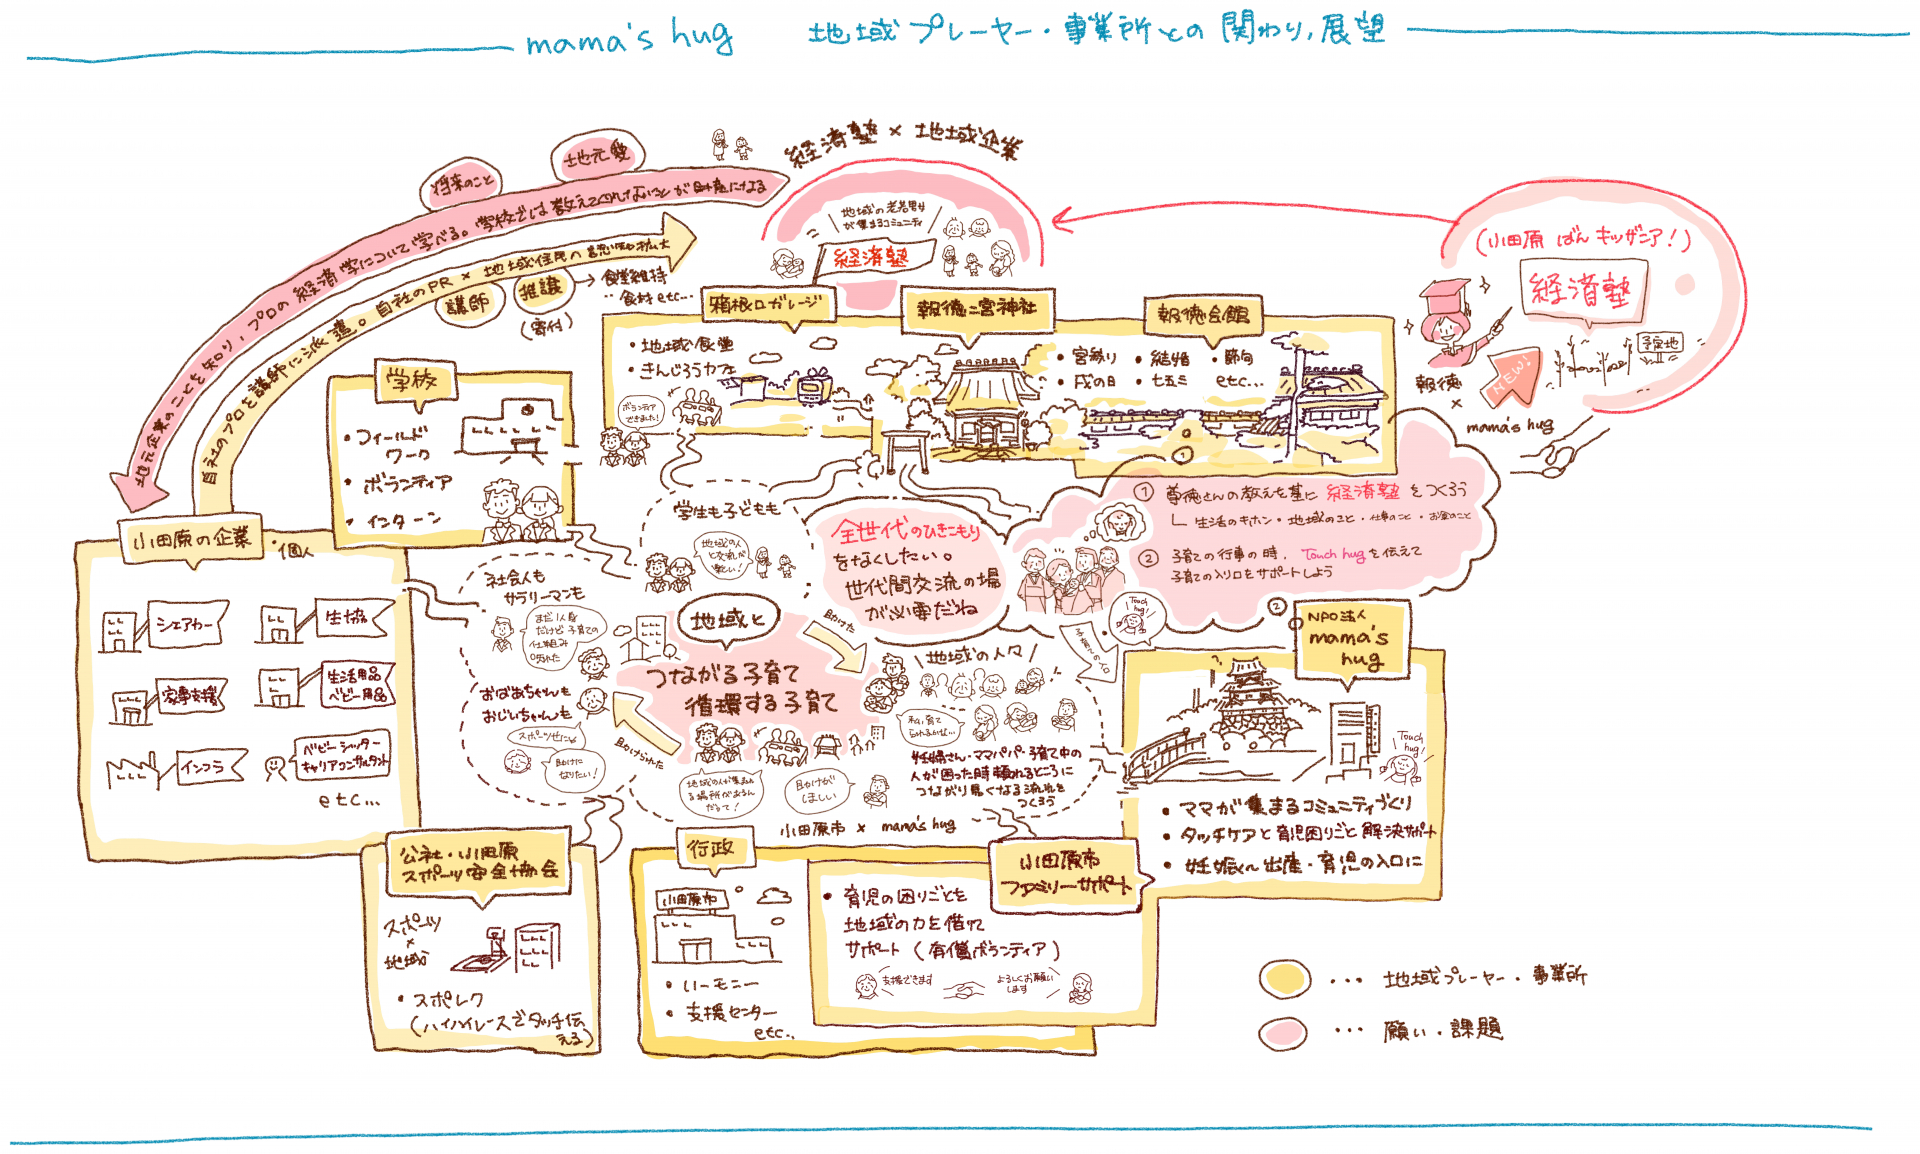 mama's hug 地域プレーヤー・事業所との関わり,展望
経済塾 × 地域企業
地元愛
将来のこと
地元企業のことを知り、プロの経済学について学べる。学校では教えてくれないことが財産になる
自社のプロを講師に派遣。自社のPR × 地域住民の
講師
推譲
(寄付)
→食堂維持
食材 etc...
地域の老若男女
が集まるコミュニティ
経済塾
(小田原 ばん キッザニア!)
経済塾
予定地
NEW!
報徳
×
mama's hug
箱根口ガレージ
・地域食堂
・きんじろうカフェ
ボランティア
できました!
報徳二宮神社
報徳会館
・宮参り ・結婚 ・節句
・戌の日 ・七五三 etc...
学校
・フィールド
ワーク
・ボランティア
・インターン
小田原の企業
・個人
シェアカー
生協
家事支援
生活用品
ベビー用品
インフラ
ベビーシッター
キャリアコンサルタント
etc...
学生も子どもも
地域の人
と交流が
楽しい!
社会人も
サラリーマンも
まだ1人身
だけど子育ての
仕組み
知れた
おばあちゃんも
おじいちゃんも
スポーツ
助けに
なりたい!
全世代のひきこもり
をなくしたい。
世代間交流の場
が必要だね
① 尊徳さんの教えを基に 経済塾 をつくろう
└ 生活のキホン・地域のこと・仕事のこと・お金のこと
② 子育ての行事の時、Touch hugを伝えて
子育ての入り口をサポートしよう
Touch
hug!
子育ての入口
地域と
つながる子育て
循環する子育て
助けた
助けられた
地域の人が集まれ
る場所があるん
だって!
助けが
ほしい
地域の人々
妊婦さん・ママパパ・子育て中の
人が困った時頼れるところに
つながり易くなる流れを
つくろう
小田原市 × mama's hug
NPO法人
mama's
hug
Touch
hug!
・ママが集まるコミュニティづくり
・タッチケアと育児困りごと解決サポート
・妊娠〜出産・育児の入口に
公社・小田原
スポーツ安全協会
スポーツ
×
地域
・スポレク
(ハイハイレースでタッチ伝
える)
行政
小田原市
・ハーモニー
・支援センター
etc..
小田原市
ファミリーサポート
・育児の困りごとを
地域の力を借りて
サポート (有償ボランティア)
支援できます
よろしくお願い
します
... 地域プレーヤー・事業所
... 願い・課題